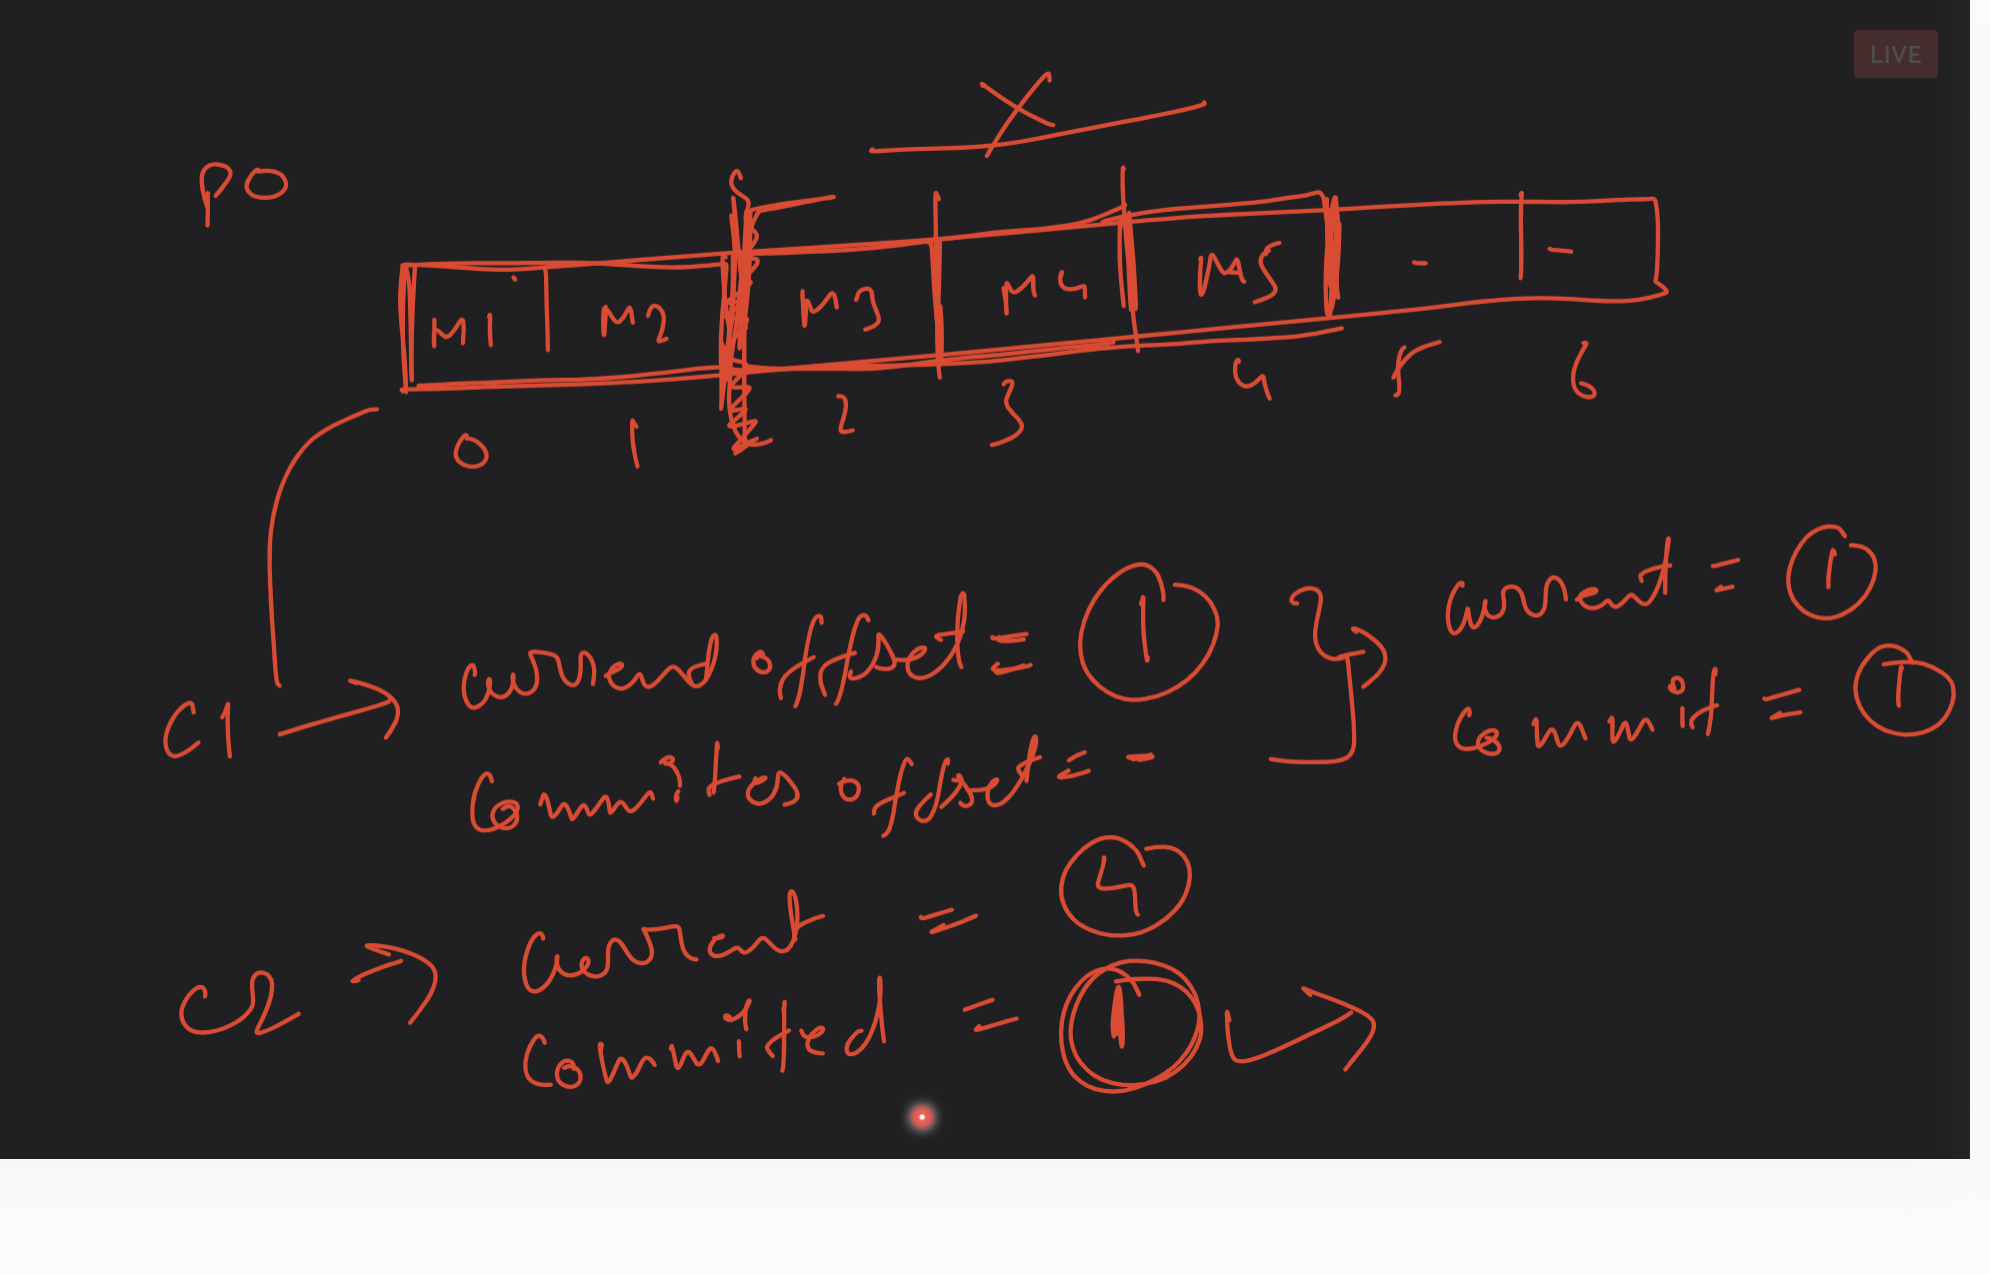 LIVE
X
P0
M1 M2 M3 M4 M5 - -
0 1 2 3 4 5 6
C1 → current offset = 1
Commited offset = -
current = 1
Commit = 1
C2 → Current = 4
Commited = 1